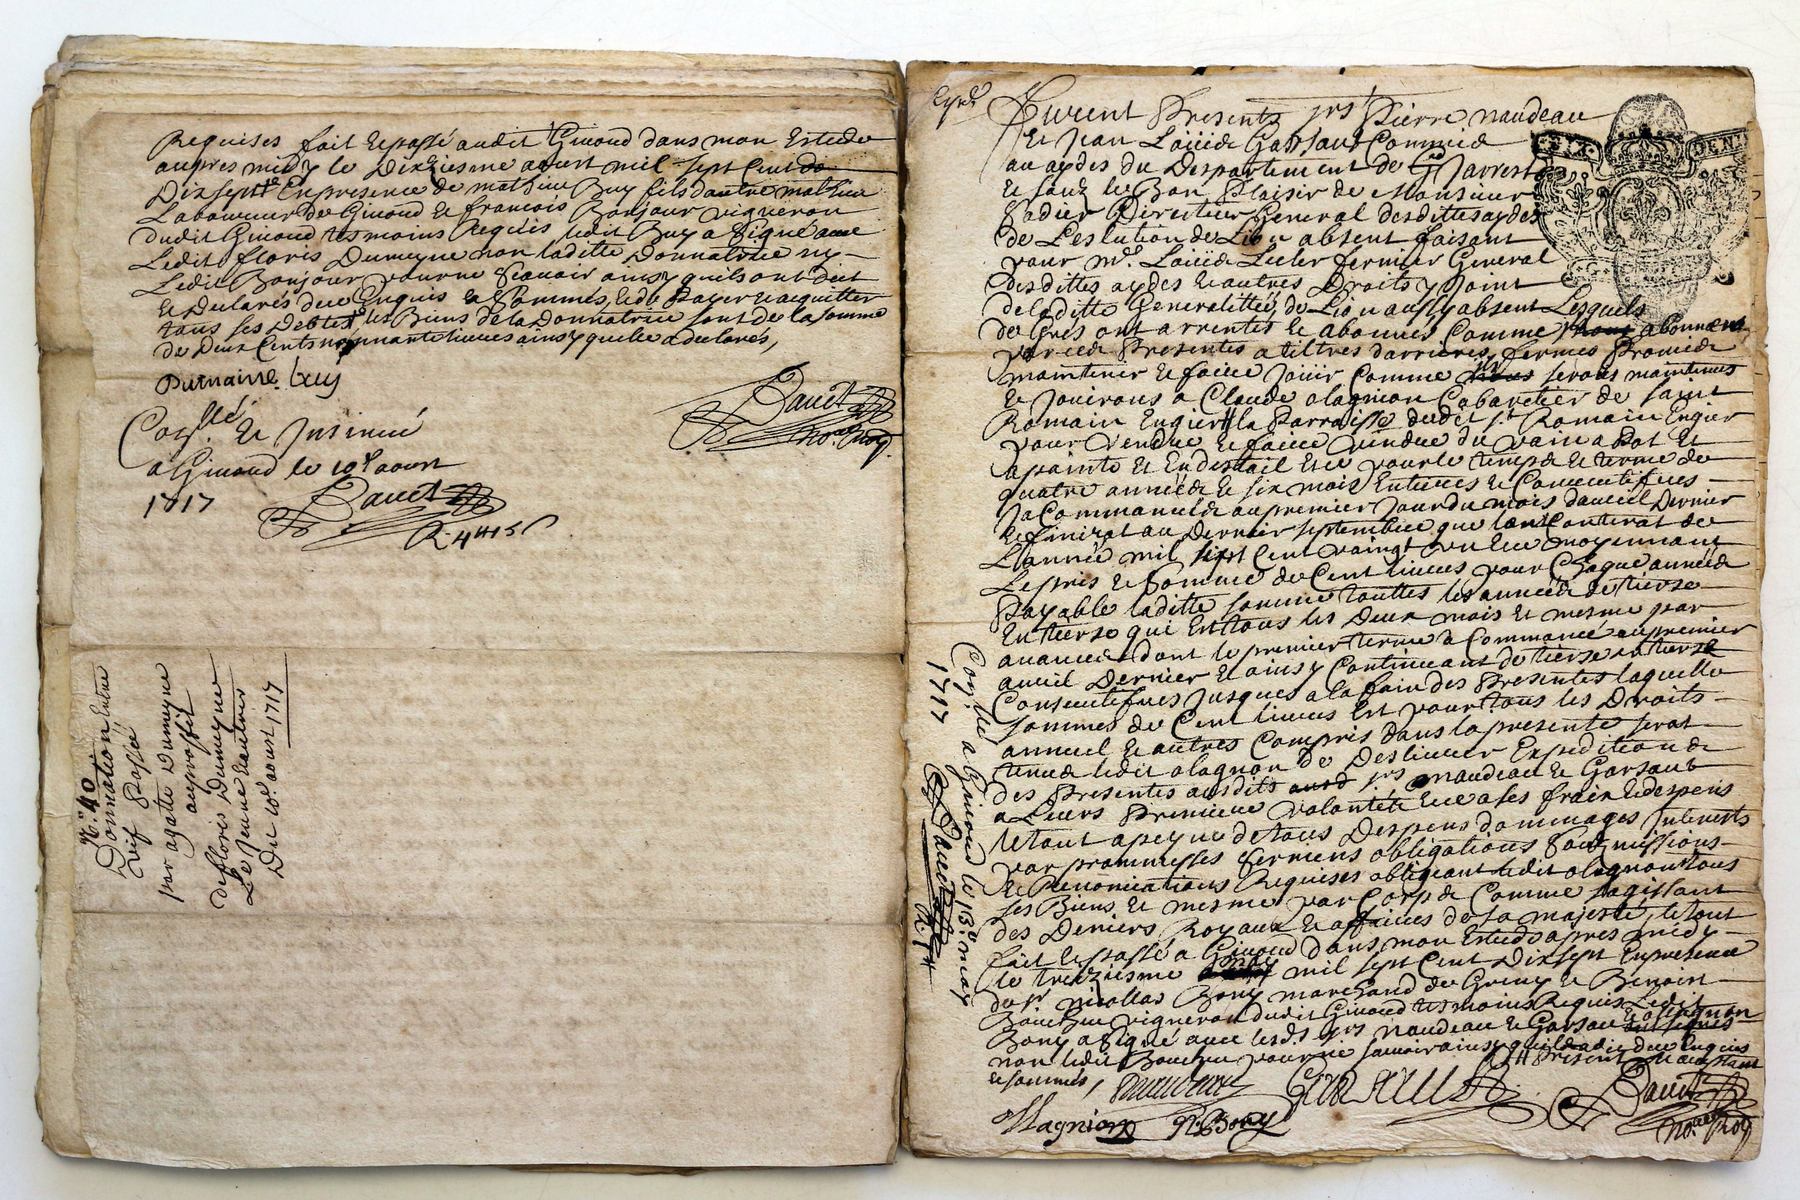 Requises fait et passé audit Givord dans mon Estude
aupres midy le Dixiesme aoust mil sept Cent
Dix sept En presence de mathieu Buy fils dautre mathieu
Laboureur de Givord et francois Bonjour vigneron
dudit Givord tesmoins Requis ledit Buy a signé avec
Ledit floris Dumeyne non laditte Donnatrice ny
Ledit Bonjour pour ne scavoir ainsy quils ont dit
et declarés de ce Enquis et sommés, et de payer et acquitter
tous ses Debtes, les Biens de la Donnatrice sont de la somme
de Deux Cents nonnante livres ainsy quelle a declarés,
Dumaine Buy
Dauet
No.re Roy.
et Insinué
a Givord le 10e aoust
1717
Dauet
R. 4
N.o 40
Donnation Entre
vif Passée
par agatte Dumeyne
au proffit
de floris Dumeyne
Le jeune
Du 10e aoust 1717
furent Presents srs Pierre naudeau
Et Jean Garsaut Commis
au aydes du Despartement de St Jarrest
et souz le Bon Plaisir de Monsieur
Sadier Directeur General desdittes aydes
de Leslution de Lion absent faisant
pour Mr. fermier General
desdittes aydes et autres Droits y Joint
de laditte Generalitté, de Lion aussy absent Lesquels
de Gres ont arrentés et abonnés Comme abonnent
par ces Presentes a tiltres darrieres fermes Promede
maintenir et faire Jouir Comme serons maintenus
et Jouirons a Claude olagnon Cabaretier de saint
Romain Engier la Parroisse dudit St. Romain Engier
pour vendre et faire vendre du vain a Pot et
a painte et En destail et ce pour le temps et terme de
quatre années et six mois Entieres et Consecutifves
Ja Commancés au premier Jour du mois davril Dernier
et finirat au Dernier septembre que lont Conterat de
Lannée mil sept Cent vaingt un et ce moyennant
Le pris et somme de Cent livres pour Chaque année
Payable laditte somme touttes les années de tierse
En tierse qui Est tous les Deux mois et mesme par
avance dont le premier terme a Commancé au premier
avril Dernier et ainsy Continuant de tierse en tierse
Consecutifves Jusques a la fain des Presentes laquelle
sommes de Cent livres Est pour tous les Droits
annuel et autres Compris dans la presente serat
tenue ledit olagnon de Deslivrer Expedition de
des Presentes ausdits srs naudeau et Garsaut
a Leurs Premiere volontés et ce a ses frais et despens
le tout a peyne de tous Despens dommages Interests
par prommesses sermens obligations soubmissions
et Renonciations Requises obligeant ledit olagnon tous
ses Biens et mesme par Corps et Comme sagissant
des Deniers Royaux et affaires de sa majesté, le tout
fait et passé a Givord dans mon Estude apres midy
le treiziesme may mil sept Cent Dix sept En presence
de sr nicollas Bony marchand de Greny et Benoin
vigneron dudit Givord tesmoins Requis Ledit
Bony a signé avec lesd. srs naudeau et Garsaut
non ledit pour ne scavoir ainsy quil a dit de ce Enquis
et sommés,
naudeau
Garsault
Dauet
No.re Roy
Magnion
N. Bony
a Givord le 13e may
1717